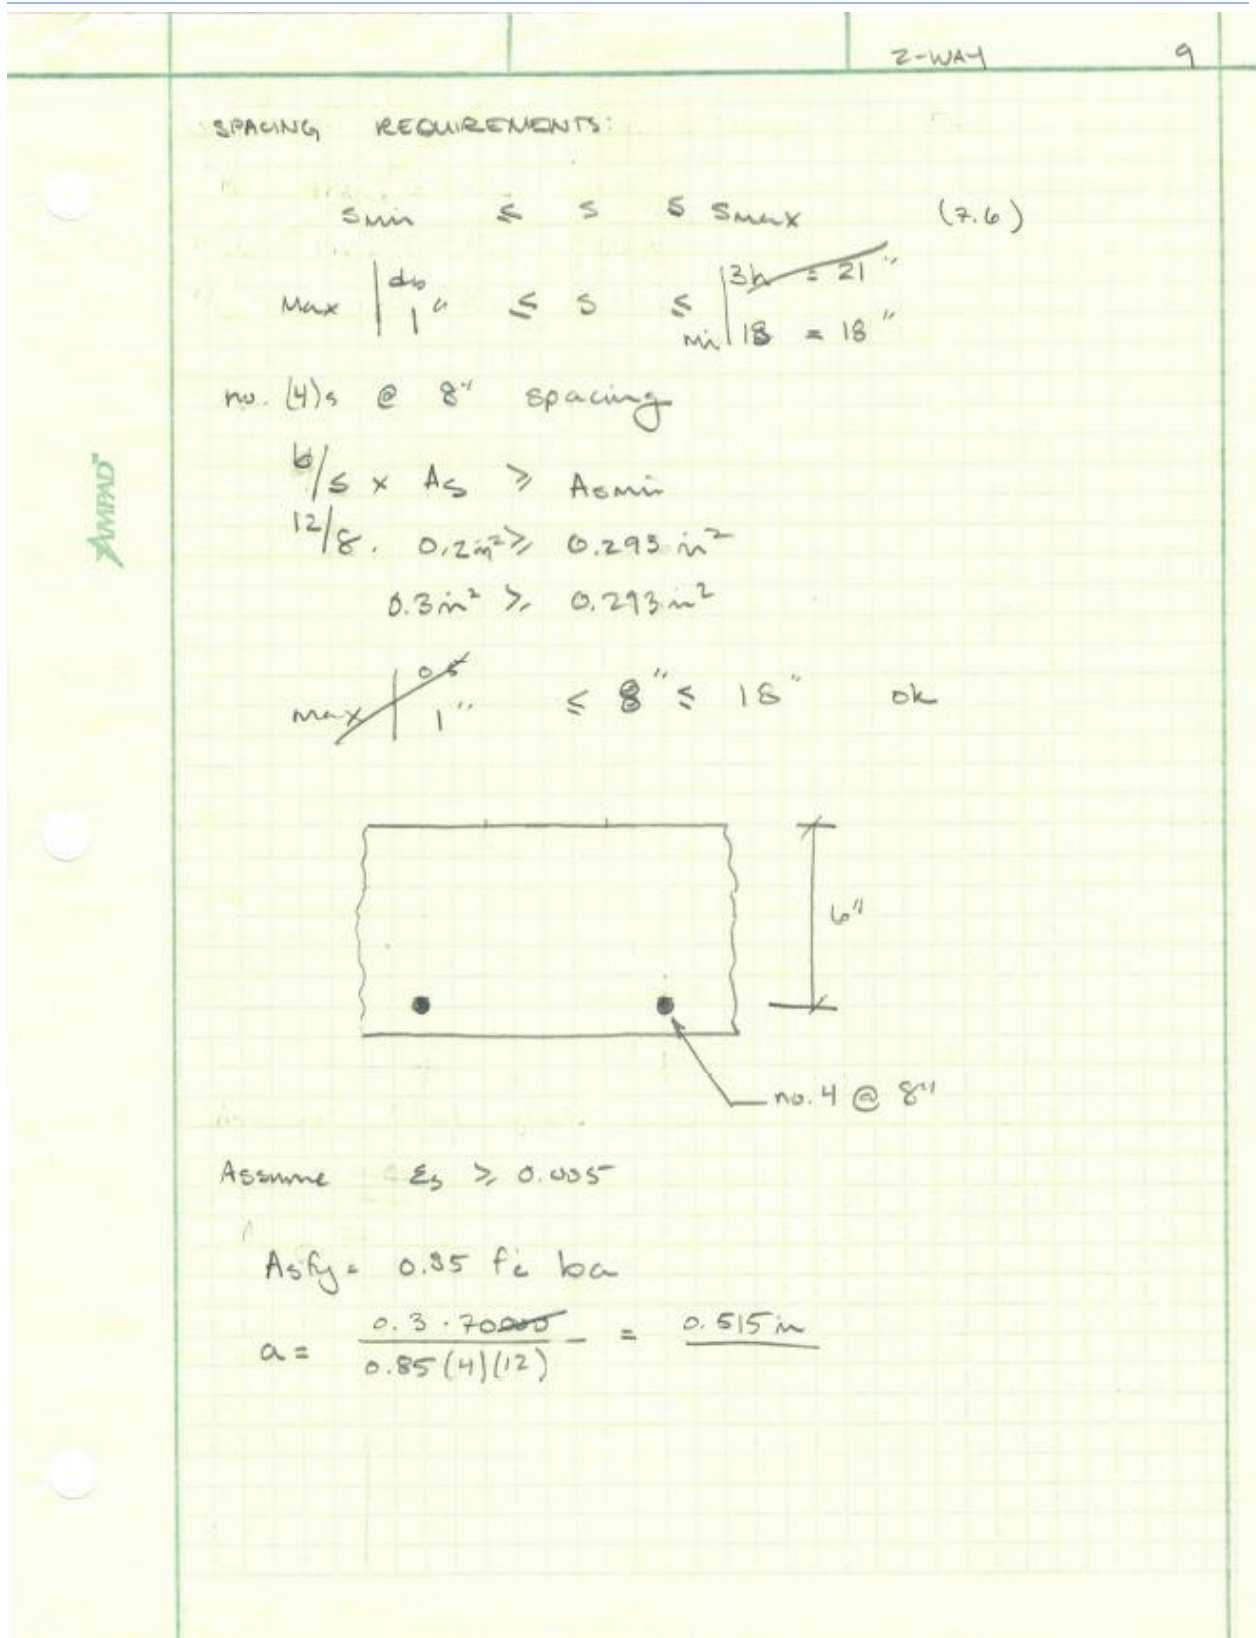 2-WAY 9
SPACING REQUIREMENTS:
smin ≤ s ≤ smax (7.6)
Max | db
1" ≤ s ≤ min | 3h = 21"
18 = 18"
no. (4)s @ 8" spacing
b/s × As ≥ Asmin
12/8 . 0.2in² ≥ 0.293 in²
0.3in² ≥ 0.293in²
max | 0.5
1" ≤ 8" ≤ 18" ok
AMPAD™
6"
no. 4 @ 8"
Assume εs ≥ 0.005
Asfy = 0.85 f'c ba
a = 0.3 · 70000 / 0.85(4)(12) = 0.515 in